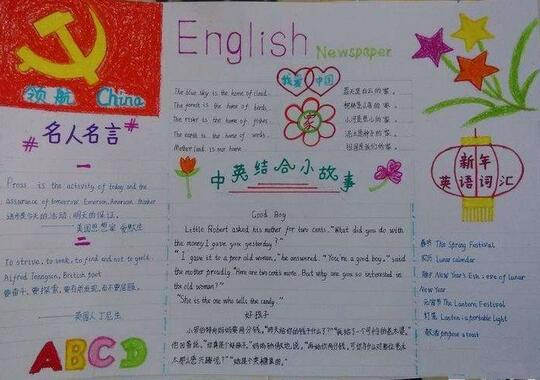 English
Newspaper
领航 China
我爱 中国
The blue sky is the home of cloud.
The forest is the home of birds.
The river is the home of fishes.
The earth is the home of words.
Mother land is our home
家
蓝天是白云的家。
树林是小鸟的家。
小河是鱼儿的家。
泥土是种子的家。
祖国是我们的家。
#名人名言#
一
is the activity of today and the
assurance of tomorrow. Emerson, American thinker
今天的活动,明天的保证。
——美国思想家
二
To strive, to seek, to find and not to yield.
Alfred Tennyson, British poet
——英国人丁尼生
ABCD
中英结合小故事
Good Boy
Little Robert asked his mother for two cents. "What did you do with
the money I gave you yesterday?"
"I gave it to a poor old woman," he answered. "You're a good boy," said
the mother proudly. "Here are two cents more. But why are you so interested in
the old woman?"
"She is the one who sells the candy."
好孩子
小罗伯特向妈妈要两分钱。"昨天给你的钱干什么了?""我给了一个可怜的老太婆,"
他回答说。"你真是个好孩子,"妈妈骄傲地说。"再给你两分钱,可你为什么对那位老太
太那么感兴趣呢?""她是个卖糖果的。"
新年
英语词汇
春节 The Spring Festival
农历 lunar calendar
除夕 New Year's Eve; eve of lunar
New Year
元宵节 The Lantern Festival
灯笼 Lantern: a portable light
敬酒 propose a toast